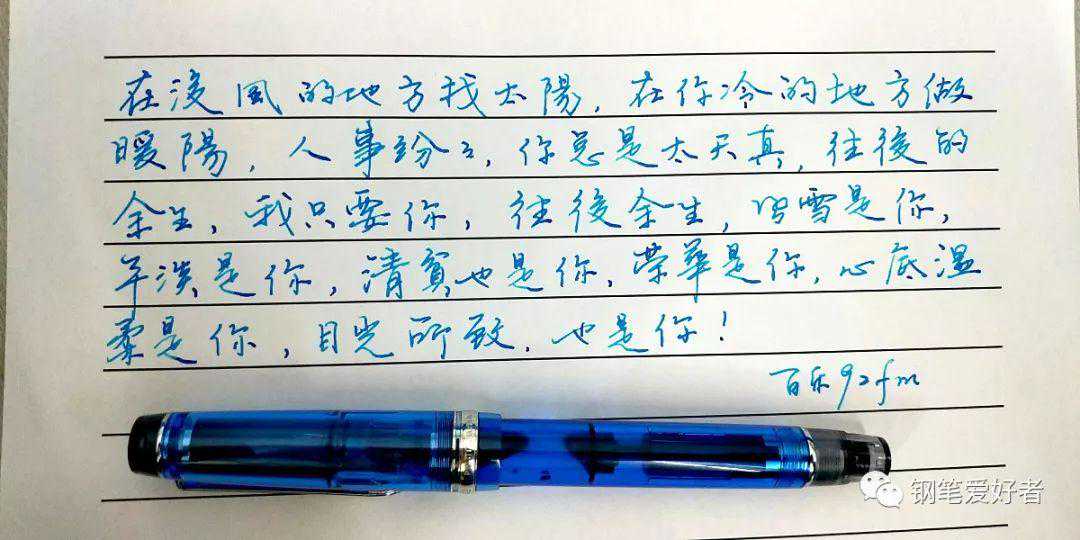 在没風的地方找太陽,在你冷的地方做
暖陽,人事纷々,你总是太天真,往後的
余生,我只要你,往後余生,冯雪是你,
平淡是你,清貧也是你,荣華是你,心底温
柔是你,目光所致,也是你!
百乐92fm
钢笔爱好者